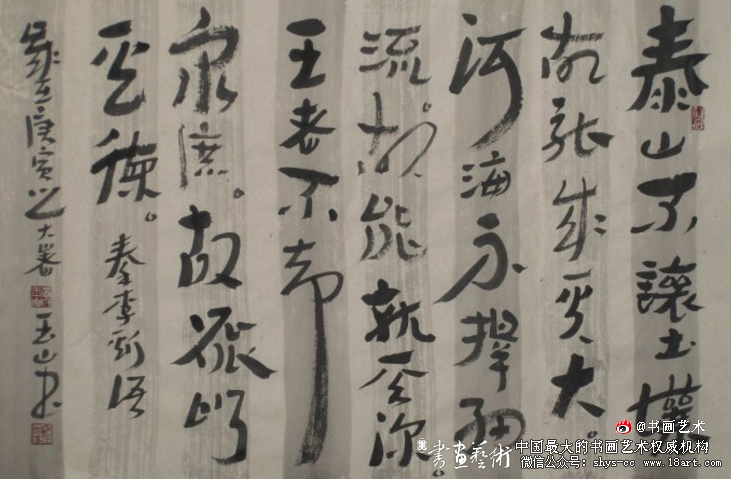 泰山不讓土壤
故能成其大。
河海不擇細
流。故能就其深
王者不却
眾庶。故能明
其德。秦李斯語
歲在庚寅之大暑 玉山書
書畫藝術
@书画艺术
中国最大的书画艺术权威机构
微信公众号：shys-cc www.18art.com